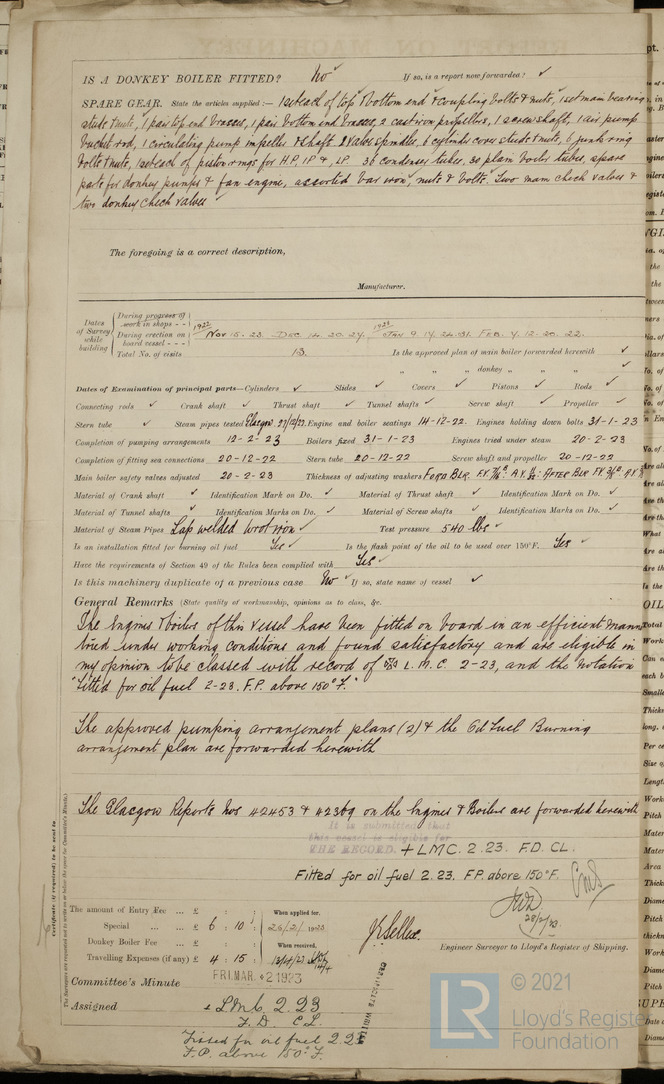 IS A DONKEY BOILER FITTED? No ✓ If so, is a report now forwarded? ✓
SPARE GEAR. State the articles supplied:— 1 set each of top & bottom end & coupling bolts & nuts, 1 set main bearing
studs & nuts, 1 pair top end brasses, 1 pair bottom end brasses, 2 cast iron propellers, 1 screw shaft, 1 air pump
bucket rod, 1 circulating pump impeller & shaft 2 valve spindles, 6 cylinder cover studs & nuts, 6 junk ring
bolts & nuts, 1 set each of piston rings for H.P. I.P & L.P. 36 condenser tubes, 30 plain boiler tubes, spare
parts for donkey pumps & fan engine, assorted bar iron, nuts & bolts. Two main check valves &
two donkey check valves
The foregoing is a correct description,
Manufacturer.
Dates of Survey while building
During progress of work in shops - -
During erection on board vessel - - -
1922 Nov 15. 23. Dec 14. 20. 27. 1923 Jan 9. 17. 24. 31. Feb. 7. 12. 20. 22.
Total No. of visits 13. Is the approved plan of main boiler forwarded herewith ✓
" " " donkey " " " ✓
Dates of Examination of principal parts—Cylinders ✓ Slides ✓ Covers ✓ Pistons ✓ Rods ✓
Connecting rods ✓ Crank shaft ✓ Thrust shaft ✓ Tunnel shafts ✓ Screw shaft ✓ Propeller ✓
Stern tube ✓ Steam pipes tested Glasgow 27/12/22. Engine and boiler seatings 14-12-22. Engines holding down bolts 31-1-23
Completion of pumping arrangements 12-2-23 Boilers fixed 31-1-23 Engines tried under steam 20-2-23
Completion of fitting sea connections 20-12-22 Stern tube 20-12-22 Screw shaft and propeller 20-12-22
Main boiler safety valves adjusted 20-2-23 Thickness of adjusting washers Ford Blr. F.V. A.V. After Blr F.V. A.V.
Material of Crank shaft ✓ Identification Mark on Do. ✓ Material of Thrust shaft ✓ Identification Mark on Do. ✓
Material of Tunnel shafts ✓ Identification Marks on Do. ✓ Material of Screw shafts ✓ Identification Marks on Do. ✓
Material of Steam Pipes Lap welded Wrot iron ✓ Test pressure 540 lbs ✓
Is an installation fitted for burning oil fuel Yes ✓ Is the flash point of the oil to be used over 150°F. Yes ✓
Have the requirements of Section 49 of the Rules been complied with Yes ✓
Is this machinery duplicate of a previous case No ✓ If so, state name of vessel ✓
General Remarks (State quality of workmanship, opinions as to class, &c.
The Engines & boilers of this vessel have been fitted on board in an efficient manner
tried under working conditions and found satisfactory and are eligible in
my opinion to be classed with record of L.M.C. 2-23, and the notation
"Fitted for oil fuel 2-23. F.P. above 150°F."
The approved pumping arrangement plans (2) & the Oil Fuel Burning
arrangement plan are forwarded herewith
The Glasgow Reports Nos 42453 & 42369 on the Engines & Boilers are forwarded herewith
It is submitted that
this vessel is eligible for
THE RECORD. + LMC. 2.23. F.D. CL.
Fitted for oil fuel 2.23. F.P. above 150°F.
28/2/23.
Certificate (if required) to be sent to
The Surveyors are requested not to write on or below the space for Committee's Minute.
The amount of Entry Fee ... £ : : When applied for.
Special ... ... £ 6 : 10 : 26/2/1923
Donkey Boiler Fee ... £ : : When received.
Travelling Expenses (if any) £ 4 : 15 : 13/4/23
Engineer Surveyor to Lloyd's Register of Shipping.
Committee's Minute FRI. MAR. 2 1923
Assigned + LMC 2.23
F.D. C.L.
Fitted for oil fuel 2.23
F.P. above 150°F.
CERTIFICATE WRITTEN
LR
© 2021
Lloyd's Register
Foundation